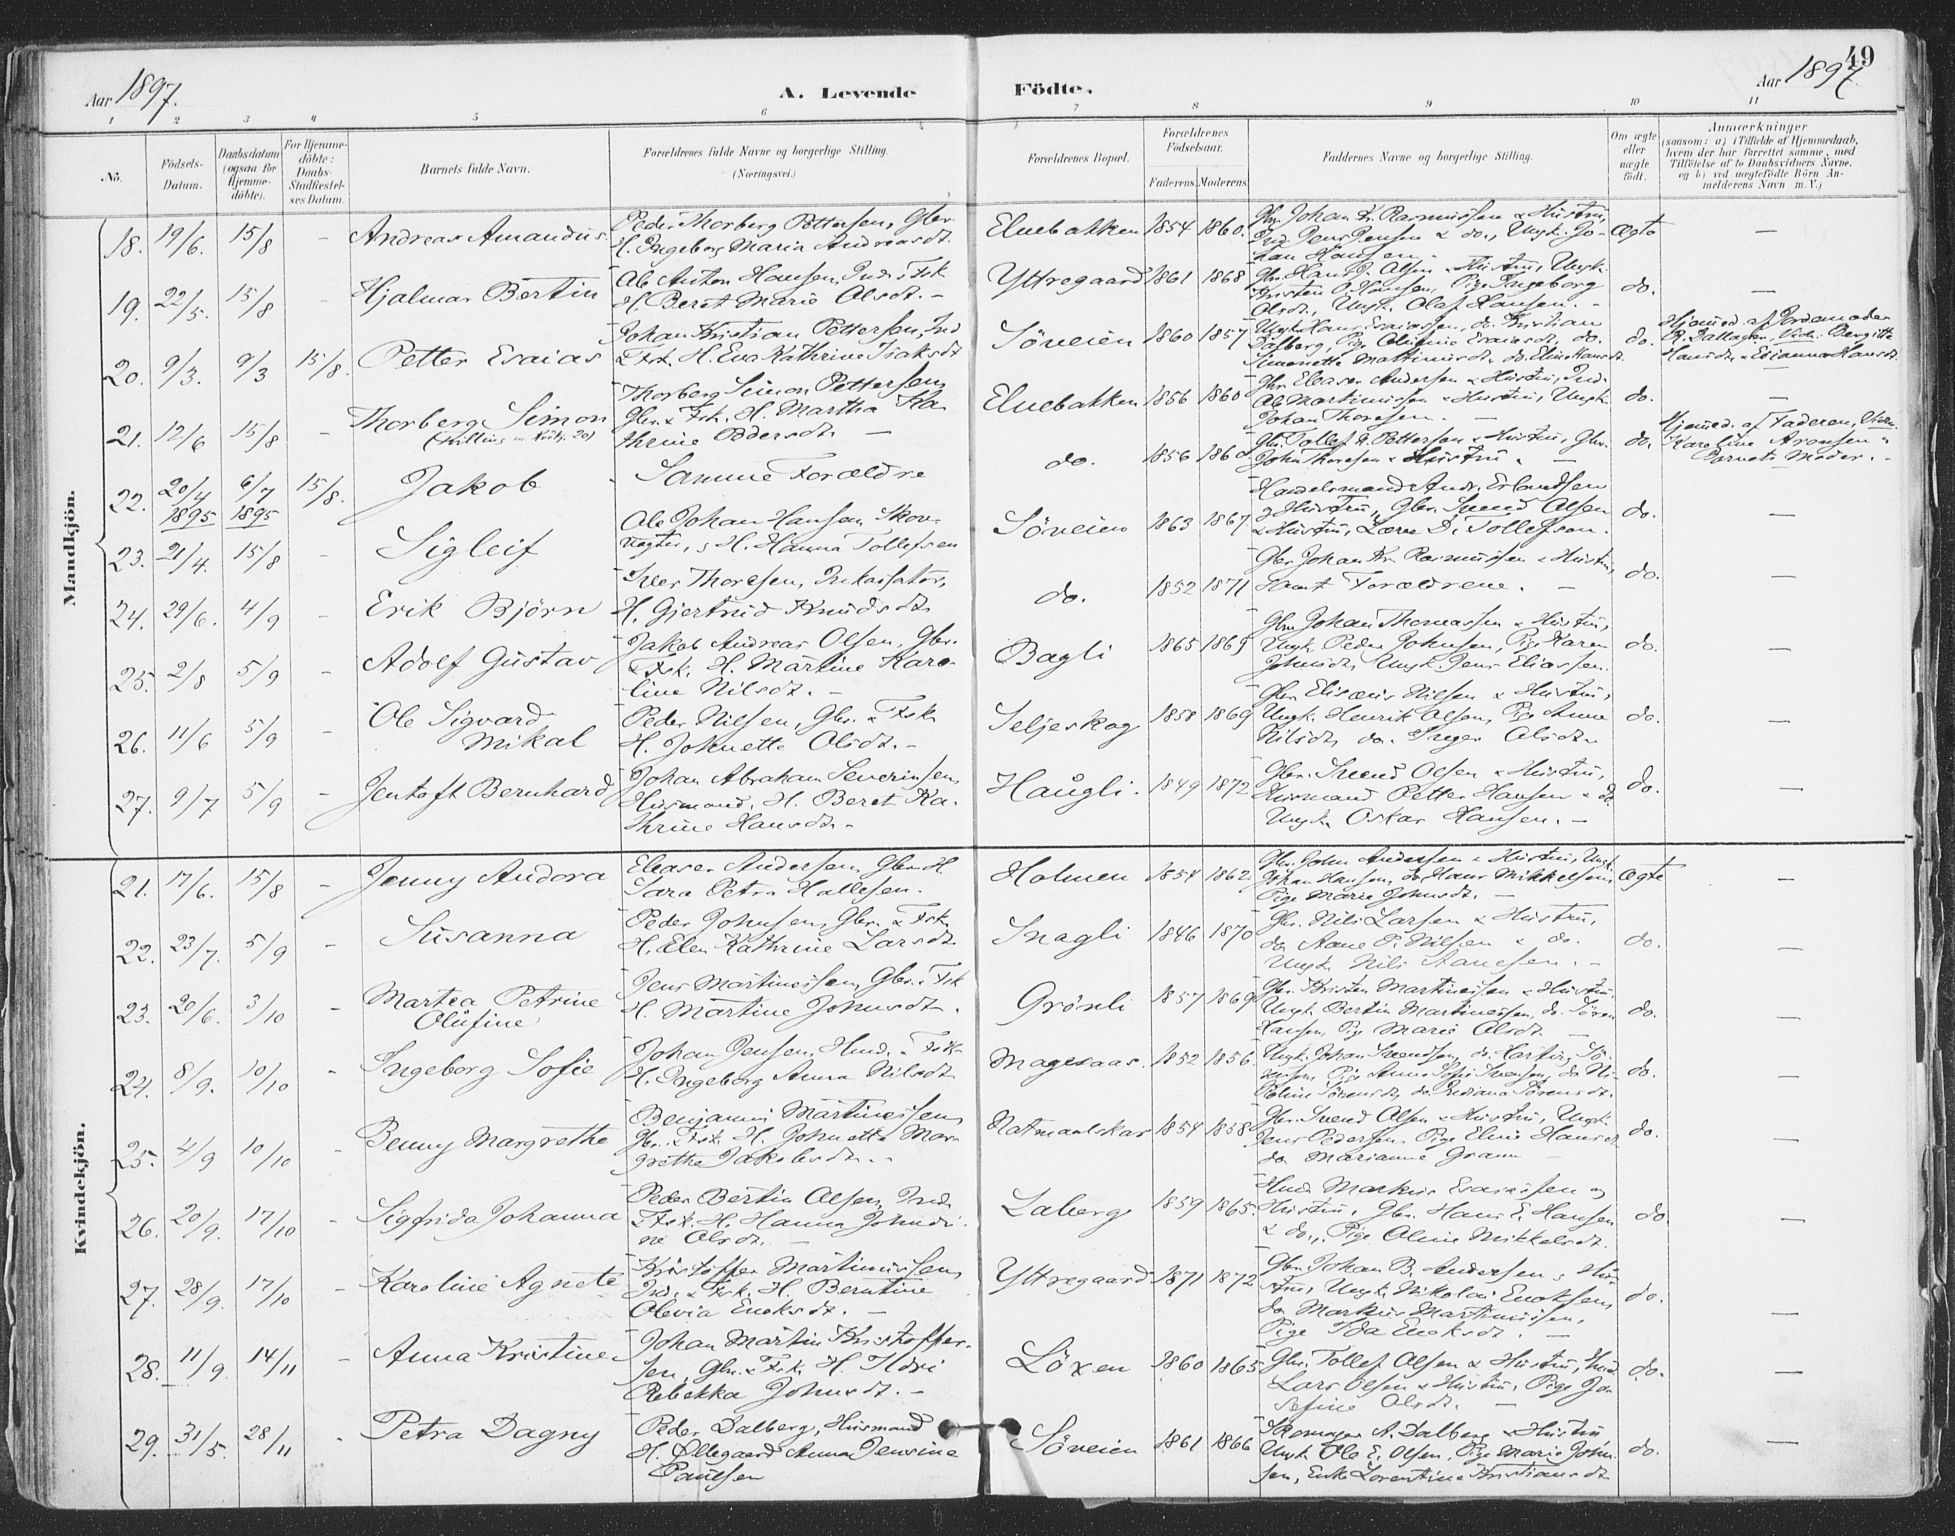 49
Aar 1897.
A. Levende Födte.
Aar 1897.
1 2 3 4 5 6 7 8 9 10 11
No.
Födsels-Datum.
Daabsdatum (ogsaa for Hjemme-döbte).
For Hjemme-döbte: Daabs-Stadfæstel-ses Datum.
Barnets fulde Navn.
Forældrenes fulde Navne og borgerlige Stilling.
(Næringsvei.)
Forældrenes Bopæl.
Forældrenes Födselsaar.
Faderens. Moderens.
Faddernes Navne og borgerlige Stilling.
Om ægte eller uægte födt.
Anmærkninger
(saasom: a) i Tilfælde af Hjemmedaab,
hvem der har forrettet samme, med
Tilföielse af to Daabsvidners Navne,
og b) ved uægtefödte Börn An-
melderens Navn m. V.)
Mandkjön.
18. 19/6. 15/8 - Andreas Amandus.
Peder Thorberg Pettersen, Gbr.
H. Ingeborg Maria Andreasdt.
Elvebakken 1854 1860.
Gbr. Johan Kr. Rasmussen & Hustru,
Ind. Jens Jensen & do., Ungk. Jo-
han Hansen.
Ægte —
19. 22/5. 15/8 Hjalmar Bertin
Ole Anton Hansen, Ind. & Fsk.
H. Beret Marie Olsdt. -
Yttregaard 1861 1868
Gbr. Hans J. Olsen & Hustru, Ungk.
Kristen O. Hansen, Pige Ingeborg
Olsdt, Ungk. Olaf Hansen. -
do. —
20. 9/3. 9/3 15/8. Petter Esaias
Johan Kristian Pettersen, Ind.
& Fsk. H. Eva Kathrine Isaksdt
Söveien 1860 1857
Ungk. Hans Esaiassen, do. Kristian
Dalberg, Pige Olufine Esaiasdt, do.
Simonette Martinusdt, do. Elen Hansdt.
do.
Hjemmed. af Jordemoder
R. Dallager, Vidn. Bergitte
Hansdt. & Edianna Hansdt.
21. 12/6 15/8 - Thorberg Simon
(Tvilling m. No 20)
Thorberg Simon Pettersen,
Gbr. & Fsk. H. Martha Ka-
thrine Pedersdt. —
Elvebakken 1856 1860
Gbr. Eleaser Andersen & Hustru, Ind.
Ole Martinussen & Hustru, Ungk.
Johan Thoresen. —
do. —
22. 20/4 1895 6/7 1895 15/8. Jakob -
Samme Forældre
do. 1856 1860
Gbr. Tollef K. Pettersen & Hustru, Gbr.
John Thoresen & Hustru. —
do.
Hjemmed. af Faderen, Vidn.
Karoline Aronsen &
Barnets Moder. -
23. 21/4. 15/8 - Sigleif
Ole Johan Hansen, Skov-
vogter, & H. Hanna Tollefsen
Söveien 1863 1867
Handelsmand Andr. Erlandsen
& Hustru, Gbr. Svend Olsen
& Hustru, Lærer D. Tollefsen.
do. —
24. 29/6. 4/9 - Erik Björn
Iver Thoresen, Inkassator,
H. Gjertrud Knudsdt.
do. 1852 1871
Gbr. Johan Kr. Rasmussen & Hustru,
samt Forældrene. —
do. —
25. 2/8 5/9 - Adolf Gustav
Jakob Andreas Olsen, Gbr.
& Fsk. H. Martine Karo-
line Nilsdt. —
Bagli 1865 1869
Gbr. Johan Thomassen & Hustru,
Ungk. Peder Johnsen, Pige Karen
Johnsdt, Ungk. Jens Eliassen.
do. —
26. 11/6 5/9 - Ole Sigvard
Mikal
Peder Nilsen, Gbr. & Fsk.
H. Johnette Olsdt. -
Seljeskog 1858 1869
Gbr. Elisæus Nilsen & Hustru,
Ungk. Henrik Olsen, Pige Anne
Nilsdt, do. Inger Olsdt.
do. —
27. 9/7 5/9 - Jentoft Bernhard
Johan Abraham Severinsen,
Husmand, H. Beret Ka-
thrine Hansdt. -
Haugli. 1849 1872
Gbr. Svend Olsen & Hustru,
Husmand Petter Hansen & do.
Ungk. Oskar Hansen. -
do. —
Kvindekjön.
21. 17/6. 15/8 - Jenny Andora
Eleaser Andersen, Gbr. H.
Sara Petra Hallesen.
Holmen 1854 1862.
Gbr. John Andersen & Hustru, Ungk.
Johan Hansen, do. Hans Mikkelsen,
Pige Marie Johnsdt. —
Ægte —
22. 23/7. 5/9 - Susanna
Peder Johnsen, Gbr. & Fsk.
H. Elen Kathrine Larsdt.
Snagli 1846 1870
Gbr. Nils Larsen & Hustru,
do. Aane P. Nilsen & do.
Ungk. Nils Aanesen. -
do. —
23. 20/6. 3/10 - Martea Petrine
Olufine
Jens Martinussen, Gbr. & Fsk
H. Martine Johnsdt.
Grönli 1857 1869
Gbr. Kristen Martinussen & Hustru,
Ungk. Bertin Martinussen, do. Sören
Hansen, Pige Marie Olsdt. —
do. —
24. 8/9. 10/10 - Ingeborg Sofie
Johan Jensen, Husmd. & Fsk.
H. Ingeborg Anna Nilsdt
Magesaas. 1852 1856.
Ungk. Johan Svendsen, do. Hartvig Sö-
rensen, Pige Anna Sofie Svensen, do. Ni-
koline Sörensdt, do. Indiana Sörensdt.
do. —
25. 4/9 10/10 - Benny Margrethe
Benjamin Martinussen,
Gbr. & Fsk. H. Johnetta Mar-
grethe Jakobsdt. -
Natmaalskar 1854 1858
Gbr. Svend Olsen & Hustru, Ungk.
Jens Pedersen, Pige Eline Hansdt
do. Marianne Graum —
do. —
26. 20/9. 17/10 - Sigfrida Johanna
Peder Bertin Olsen, Ind.
& Fsk. H. Hanna Johndi-
ne Olsdt. —
Laberg 1859 1865.
Husmd. Markus Esaiassen og
Hustru, Gbr. Hans E. Hansen
& do., Pige Oline Mikkelsdt.
do. —
27. 28/9. 17/10 - Karoline Agnete
Kristoffer Martinussen,
Ind. & Fsk. H. Berntine
Olevia Enoksdt. —
Yttregaard 1871 1872
Gbr. Johan B. Andersen & Hus-
tru, Ungk. Nikolai Enoksen,
do. Markus Martinussen,
Pige Ida Enoksdt. —
do. —
28. 11/9. 14/11 - Anna Kristine
Johan Martin Kristoffer-
sen, Gbr. & Fsk. H. Idri
Rebekka Johnsdt. -
Löxen 1860 1865
Gbr. Tollef Olsen & Hustru, Husmd.
Lars Olsen & Hustru, Pige Jo-
sefine Olsdt. —
do. —
29. 31/5. 28/11 - Petra Dagny
Peder Dalberg, Husmand
H. Ollegaard Anna Jensine
Paulsen
Söveien 1861 1866
Skomager A. Dalberg & Hustru
Ungk. Ole E. Olsen, Pige Marie John-
sen, Enke Lorentine Kristiansdt.
do. —